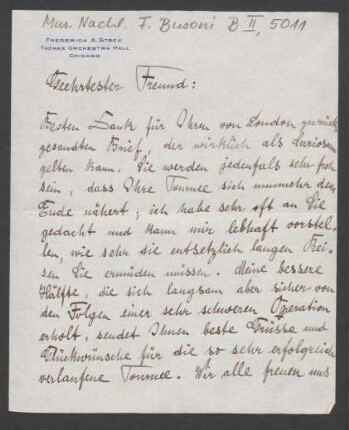 Mus. Nachl. F. Busoni B II, 5011
FREDERICK A. STOCK
THOMAS ORCHESTRA HALL
CHICAGO
Geehrtester Freund:
Besten Dank für Ihren von London zurück-
gesendten Brief, der wirklich als Curiosum
gelten kann. Sie werden jedenfalls sehr froh
sein, dass Ihre Tournee sich nunmehr dem
Ende nähert; ich habe sehr oft an Sie
gedacht und kann mir lebhaft vorstel-
len, wie sehr die entsetzlich langen Rei-
sen Sie ermüden müssen. Meine bessere
Hälfte, die sich langsam aber sicher von
den Folgen einer sehr schweren Operation
erholt, sendet Ihnen beste Grüsse und
Glückwünsche für die so sehr erfolgreich
verlaufene Tournee. Wir alle freuen uns